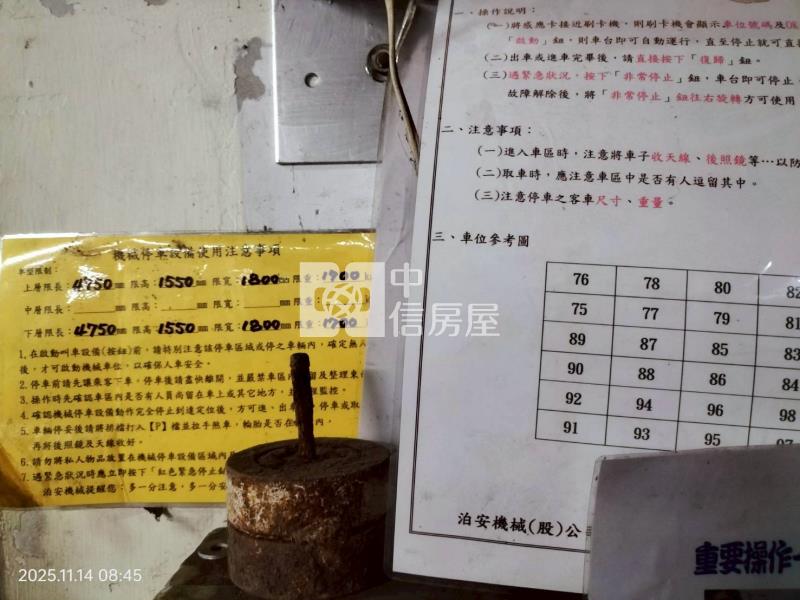 機械停車設備使用注意事項
車型限制:
上層限長:4750mm 限高:1550mm 限寬:1800cm 限重:1900k
中層限長: mm 限高: mm 限寬:
下層限長:4750mm 限高:1550mm 限寬:1800mm 限重:1700
1.在啟動叫車設備(按鈕)前,請特別注意該停車區域或停之車輛內,確定無人
後,才可啟動機械車位,以確保人車安全。
2.停車前請先讓乘客下車,停車後請盡快離開,並嚴禁車區內
留及整理東
3.操作時先確認車區內是否有人員尚留在車上或其它地方,主
監控。
4.確認機械停車設備動作完全停止到達定位後,方可進、出車
停車或取
5.車輛停妥後請將排檔打入【P】檔並拉手煞車,輪胎是否在
再將後照鏡及天線收好。
6.請勿將私人物品放置在機械停車設備區域內
7.遇緊急狀況時應立即按下「紅色緊急停止
泊安機械提醒您:多一分注意,多一分安
一、操作說明:
(一)將感應卡接近刷卡機,則刷卡機會顯示車位號碼及
「啟動」鈕,則車台即可自動運行,直至停止就可直
(二)出車或進車完畢後,請直接按下「復歸」鈕。
(三)遇緊急狀況,按下「非常停止」鈕,車台即可停止
故障解除後,將「非常停止」鈕往右旋轉方可使用
二、注意事項:
(一)進入車區時,注意將車子收天線、後照鏡等…以防
(二)取車時,應注意車區中是否有人逗留其中。
(三)注意停車之客車尺寸、重量。
三、車位參考圖
76 78 80 82
75 77 79 81
89 87 85 83
90 88 86 84
92 94 96 98
91 93 95 97
泊安機械(股)公
重要操作
中信房屋
2025.11.14 08:45